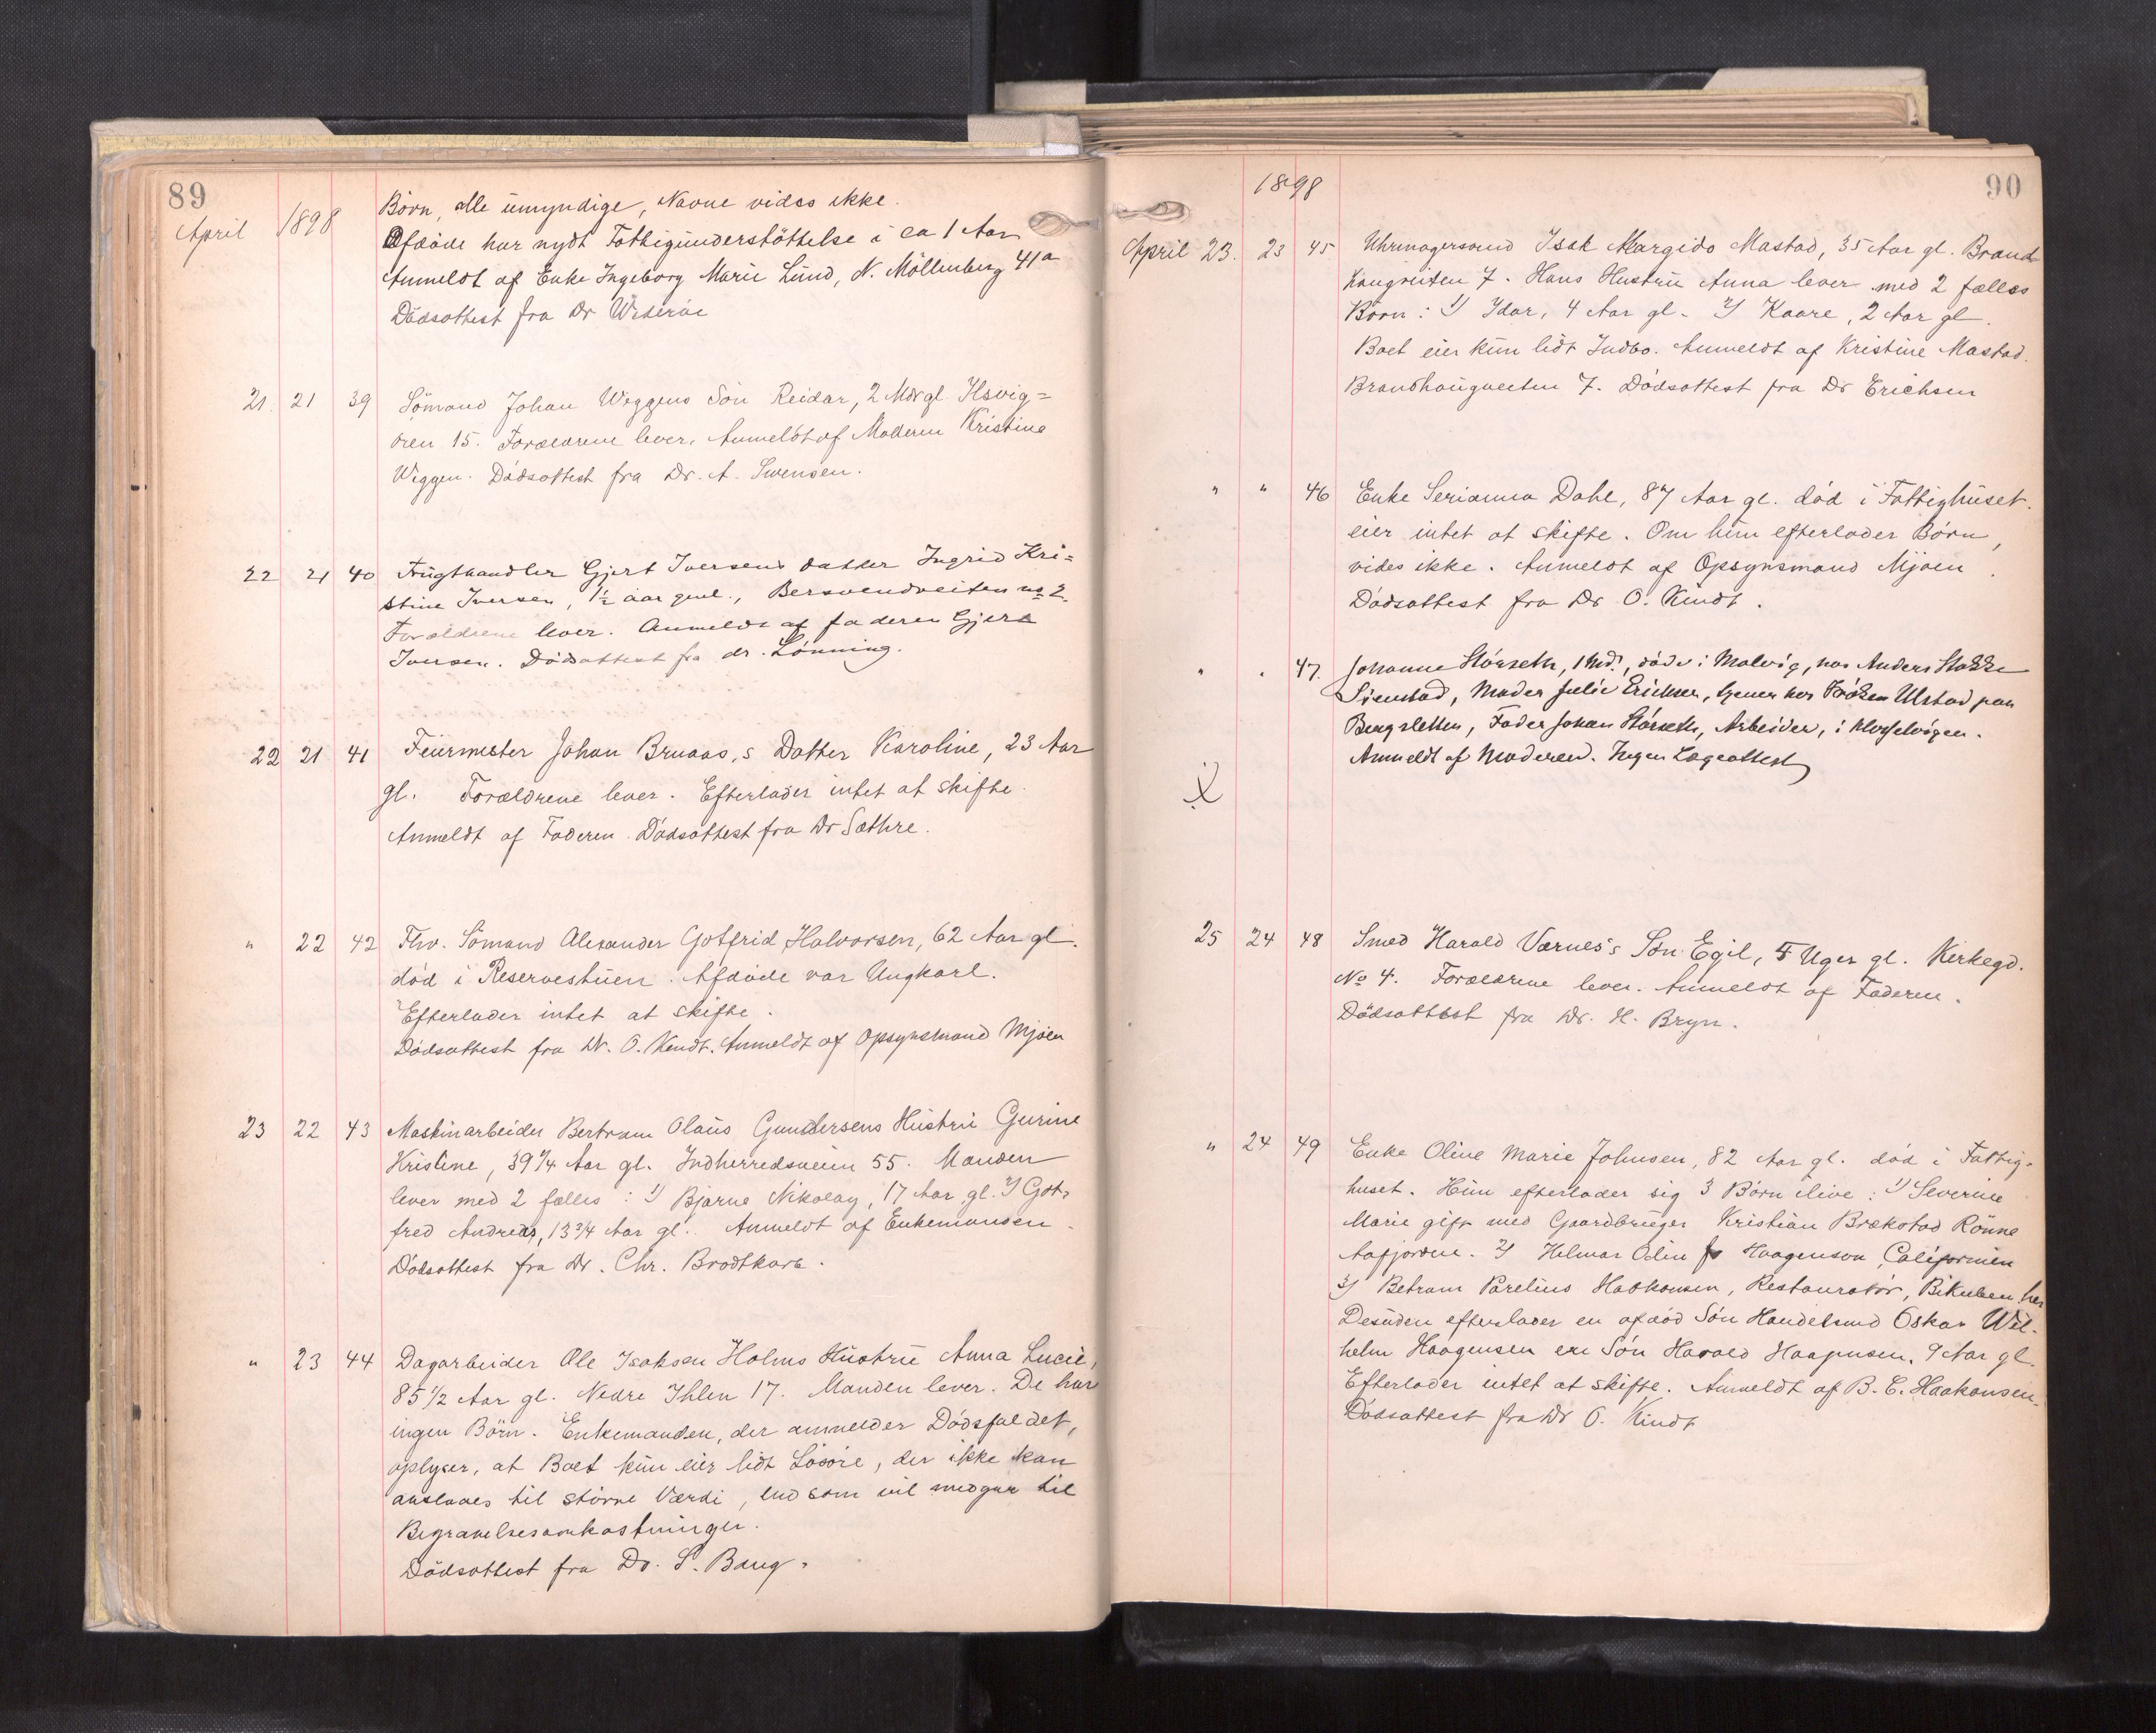 89
April 1898 Børn, alle umyndige, Navne vides ikke.
Afdøde har nydt Fattigunderstöttelse i ca 1 Aar
Anmeldt af Enke Ingeborg Marie Lund, N. Möllenberg 41a
Dödsattest fra Dr
21. 21 39 Sömand Johan Wiggens Sön Reidar, 2 Mdr gl. Ilsvig=
ören 15. Forældrene lever. Anmeldt af Moderen Kristine
Wiggen. Dødsattest fra Dr. A. Svensen.
22 21 40 Frugthandler Gjert Iversens datter Ingrid Kri=
stine Iversen, 1½ aar gml., Bersvendveiten no 2.
Forældrene lever. Anmeldt af faderen Gjert
Iversen. Dödsattest fra dr. Lönning.
22 21 41 Feiermester Johan Bruaas,s Datter Karoline, 23 Aar
gl. Forældrene lever. Efterlader intet at skifte.
Anmeldt af Faderen. Dödsattest fra Dr Sæthre.
" 22 42 Fhv. Sömand Alexander Gotfrid Halvorsen, 62 Aar gl.
död i Reservestuen. Afdøde var Ungkarl.
Efterlader intet at skifte.
Dödsattest fra Dr. O. Kindt. Anmeldt af Opsynsmand Mjøen
23 22 43 Maskinarbeider Bertram Olaus Gundersens Hustru Gurine
Kristine, 39 1/4 Aar gl. Indherredsveien 55. Manden
lever med 2 fælles: 1/ Bjarne Nikolay, 17 Aar gl. 2/ Got=
fred Andreas, 13 3/4 Aar gl. Anmeldt af Enkemanden.
Dödsattest fra Dr. Chr. Brodtkorb.
" 23 44 Dagarbeider Ole Isaksen Holms Hustru Anna Lucie,
85 1/2 Aar gl. Nedre Ihlen 17. Manden lever. De har
ingen Börn. Enkemanden, der anmelder Dödsfaldet,
oplyser, at Boet kun eier lidt Lösöre, der ikke kan
anslaaes til större Værdi, end som vil medgaa til
Begravelsesomkostninger.
Dödsattest fra Dr. S. Bang.
90
1898
April 23. 23 45 Uhrmagersvend Isak Margido Mastad, 35 Aar gl. Brand
haugveiten 7. Hans Hustru Anna lever med 2 fælles
Børn: 1/ Idar, 4 Aar gl. 2/ Kaare, 2 Aar gl.
Boet eier kun lidt Indbo. Anmeldt af Kristine Mastad.
Brandhaugveiten 7. Dödsattest fra Dr Erichsen
" " 46 Enke Serianna Dahl, 87 Aar gl. död i Fattighuset.
eier intet at skifte. Om hun efterlader Börn,
vides ikke. Anmeldt af Opsynsmand Mjøen.
Dødsattest fra Dr O. Kindt.
" " 47. Johanne Störseth, 1 Md., døde i Malvig, hos Anders Stokke
Moder Julie Erichsen, tjener hos Fröken Ulstad paa
Bergsletten, Fader Johan Störseth, Arbeider, i
Anmeldt af Moderen. Ingen Lægeattest
25 24 48 Smed Harald Værnes's Søn Egil, 5 Uger gl. Kirkegd.
No 4. Forældrene lever. Anmeldt af Faderen.
Dödsattest fra Dr. H. Bryn.
" 24 49 Enke Oline Marie Johnsen, 82 Aar gl. død i Fattig=
huset. Hun efterlader sig 3 Børn ilive: 1/ Severine
Marie gift med Gaardbruger Kristian Brækstad Rönne
Aafjorden. 2/ Helmar Odin Haagenson, Californien
3/ Betram Parelius Haakonsen, Restauratör, Bikuben her
Desuden efterlader en afdöd Sön Handelsmd Oskar Wil=
helm Haagensen en Søn Harald Haagensen, 9 Aar gl.
Efterlader intet at skifte. Anmeldt af B. C. Haakonsen.
Dødsattest fra Dr O. Kindt